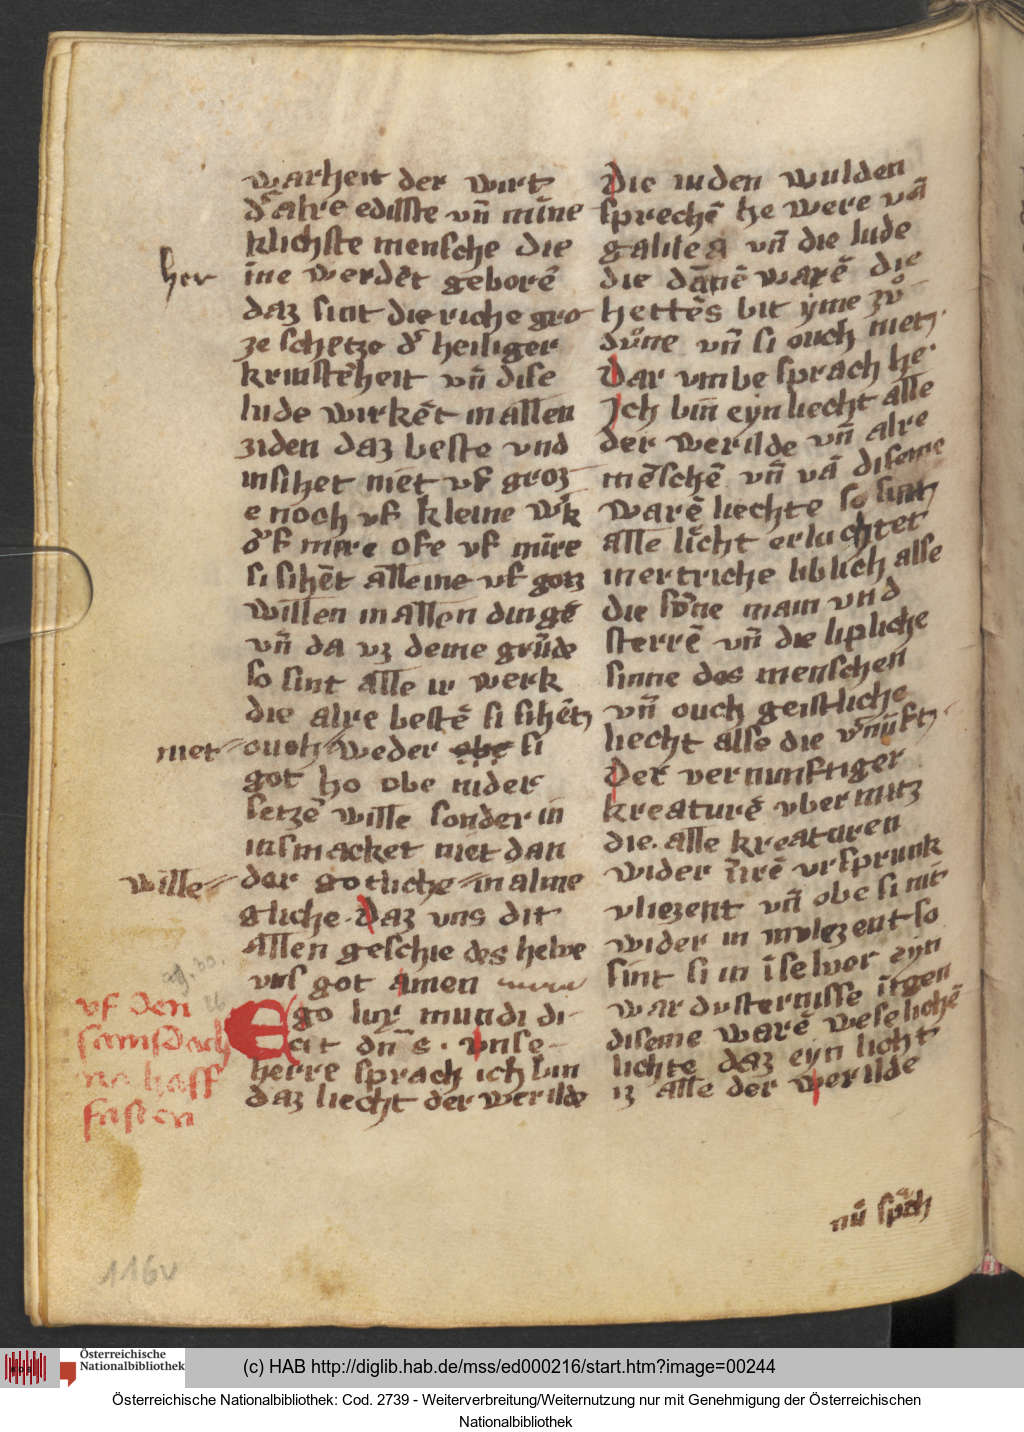 warheit der wirt
d'alre edilste vn̄ mīne
klichste mensche die
her
īne werdēt geborē
daz sint die riche gro
ze schetze d' heiliger
kristēheit vn̄ dise
lude wirkēt in allen
ziden daz beste vnd
insihet niet vf groz
e noch vf kleine w'k
d'f mere ofe vf mīre
si sihēt alleine vf gotz
willen in allen dingē
vn̄ da vz deme grūde
so sint alle ir werk
die alre bestē si sihētz
niet
ouch weder obe si
got ho obe nider
setzē wille sonder in
insmacket niet dan
wille
der gotliche in alme
gliche. Daz vns dit
allen geschie des helve
vns got amen
vf den
samsdach
na half
fasten
Ego lux mundi di-
cit dn̄s. vnse
herre sprach ich bin
daz liecht der werilde
Die iuden wulden
sprechē he were vā
galilea vn̄ die lude
die dānē warē die
hettēs bit ẏme zů
důne vn̄ si ouch nietz
Dar vmbe sprach he
Ich bin eyn liecht alle
der werilde vn̄ alre
mēschē vn̄ vā diseme
warē liechte so sint
alle licht erluchtet
in ertriche liblich alse
die sōne main vnd
sterrē vn̄ die lipliche
sinne des menschen
vn̄ ouch geistliche
liecht alse die v'nūftz
Der vernunftiger
kreaturē vbermitz
die. alle kreaturen
wider īrē vrsprunk
vliezent vn̄ obe si nit
wider in invlezent so
sint si in īselver eyn
war dusternisse īgen
diseme warē weselichē
lichte daz eyn licht
iz alle der werilde
nū sprach
116v
Österreichische
Nationalbibliothek
(c) HAB http://diglib.hab.de/mss/ed000216/start.htm?image=00244
Österreichische Nationalbibliothek: Cod. 2739 - Weiterverbreitung/Weiternutzung nur mit Genehmigung der Österreichischen
Nationalbibliothek